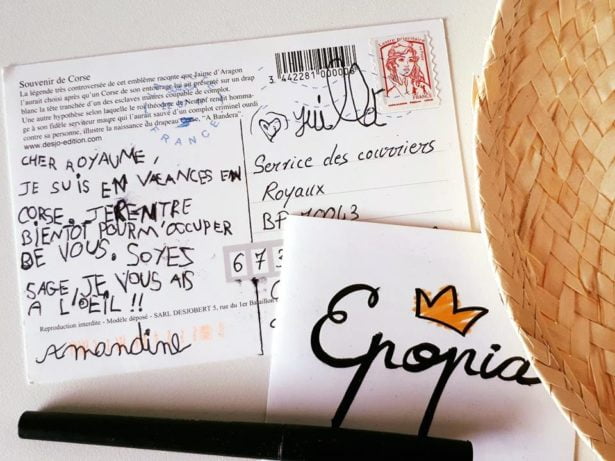 Souvenir de Corse
La légende très controversée de cet emblème raconte que Jaime d'Aragon
l'aurait choisi après qu'un Corse de son entourage lui ait présenté sur un drap
blanc la tête tranchée d'un des esclaves maures coupable de complot.
Une autre hypothèse selon laquelle le roi Théodore de Neuhof rendit homma-
ge à son fidèle serviteur maure qui l'aurait sauvé d'un complot criminel ourdi
contre sa personne, illustre la naissance du drapeau Corse, "A Bandera".
www.desjo-edition.com
CHER ROYAUME,
JE SUIS EN VACANCES EN
CORSE. JE RENTRE
BIENTOT POUR M'OCCUPER
DE VOUS. SOYES
SAGE, JE VOUS AIS
A L'OEIL !!
Amandine
Reproduction interdite - Modèle déposé - SARL DESJOBERT 5, rue du 1er Bataillon
3 442281 000008
FRANCE
FRANCE
Service des courriers
Royaux
BP 70043
6 7
Epopia